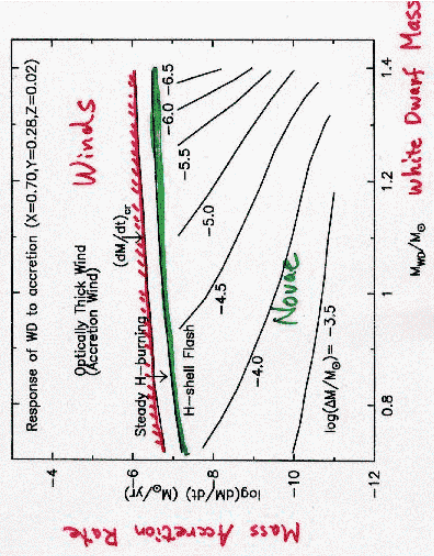 Response of WD to accretion (X=0.70,Y=0.28,Z=0.02)
Optically Thick Wind
(Accretion Wind)
Winds
(dM/dt)cr
Steady H-burning
H-shell Flash
-6.5
-6.0
-5.5
-5.0
-4.5
-4.0
log(ΔM/M☉)= -3.5
Novae
-4
-6
-8
-10
-12
log(dM/dt) (M☉/yr)
Mass Accretion Rate
0.8
1
1.2
1.4
MWD/M☉
White Dwarf Mass